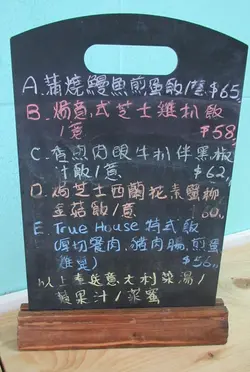 A. 蒲燒鰻魚煎蛋飯/意 $65
B. 焗意式芝士雞扒飯
/意 $58
C. 香煎肉眼牛扒伴黑椒
汁飯/意 $62
D. 焗芝士西蘭花素蟹柳
金菇飯/意 $60
E. True House 特式飯
(厚切餐肉,豬肉腸,煎蛋
雞翼) $56
以上奉送意大利菜湯/
蘋果汁/菜蜜